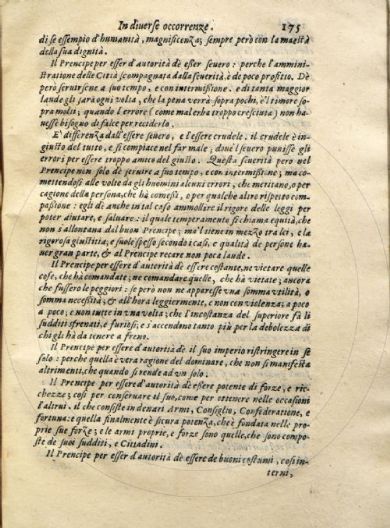 In diverse occorrenze. 175
di se essempio d'humanità, magnificenza; sempre però con la maestà
della sua dignità.
Il Prencipe per esser d'autorità dè esser seuero: perche l'ammini-
stratione delle Città scompagnata dalla seuerità, è di poco profitto. Dè
però seruirsene a suo tempo, e con intermissione. e di tanta maggior
laude gli sarà ogni volta, che la pena verrà sopra pochi, e'l timore so-
pra molti; quando l'errore (come mal'erba troppo cresciuta) non ha-
uesse bisogno di falce per reciderlo.
E' differenza dall'essere seuero, e l'essere crudele. il crudele è in-
giusto del tutto, e si compiace nel far male, doue'l seuero punisse gli
errori per essere troppo amico del giusto. Questa seuerità però nel
Prencipe non solo dè seruire a suo tempo, e con intermissione; ma co-
mettendosi alle volte da gli huomini alcuni errori, che meritano, o per
cagione della persona, che hà comessi, o per qualche altro rispetto com-
passione: egli dè anche in tal caso ammollire il rigore delle leggi per
poter aiutare, e saluare: il quale temperamento si chiama equità, che
non s'allontana dal buon Prencipe; ma'l tiene in mezzo tra lei, e la
rigorosa giustitia; e suole spesso secondo i casi, e qualità de persone ha-
uer gran parte, & al Prencipe recare non poca laude.
Il Prencipe per essere d'autorità dè essere costante, ne vietare quelle
cose, che hà comandate; ne comandare quelle, che hà vietate; ancora
che fussero le peggiori: se però non ne apparesse vna somma vtilità, o
somma necessità, & all'hora leggiermente, e non con violenza; a poco
a poco; e non tutte in vna volta; che l'incostanza del superiore fà li
sudditi sfrenati, e furiosi; e s'accendono tanto più per la debolezza di
chi gli hà da tenere a freno.
Il Prencipe per essere d'autorità dè il suo imperio ristringere in se
solo: perche quella è vera ragione del dominare, che non si manifesta
altrimenti, che quando si rende ad vn solo.
Il Prencipe per essere d'autorità dè essere potente di forze, e ric-
chezze; così per conseruare il suo, come per ottenere nelle occasioni
l'altrui. il che consiste in denari Armi, Consiglio, Confederatione, e
fortuna: e quella finalmente è sicura potenza, che è fondata nelle pro-
prie sue forze; e le armi proprie, e forze sono quelle, che sono compo-
ste de suoi sudditi, e Cittadini.
Il Prencipe per esser d'autorità dè essere de buoni costumi, così in-
terni,